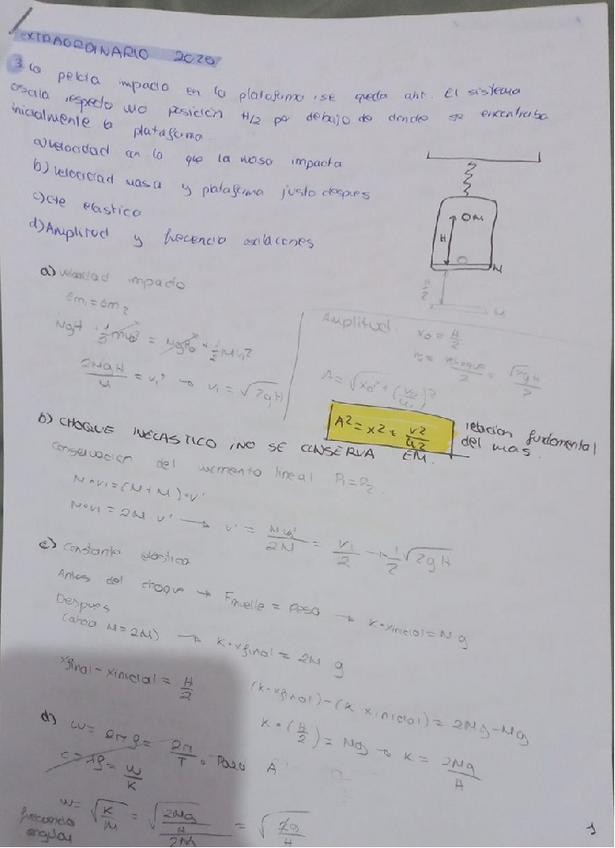 EXTRAORDINARIO 2020
3. La pelota impacta en la plataforma, se queda ahí. El sistema
oscila respecto una posición H/2 por debajo de donde se encontraba
inicialmente la plataforma.
a) velocidad en la que la masa impacta
b) velocidad masa y plataforma justo despues
c) cte elastica
d) Amplitud y frecuencia oscilaciones
M
H
M
H/2
M
a) velocidad impacto
Em1 = Em2
MgH + 1/2 mv0² = Mgh0 + 1/2 Mv1²
2MgH/M = v1² → v1 = √2gH
Amplitud. x0 = H/2
A = √x0² + (v0/ω)²
A² = x² + v²/ω²
relacion fundamental
del mas.
b) CHOQUE INELASTICO, NO SE CONSERVA EM.
Conservacion del momento lineal P1 = P2
M·v1 = (M+M)·v'
M·v1 = 2M·v' → v' = Mv1/2M = v1/2 → 1/2 √2gH
c) Constante elastica
Antes del choque → Fmuelle = Peso → K·xinicial = Mg
Despues
(ahora M = 2M) → K·xfinal = 2M g
xfinal - xinicial = H/2
(K·xfinal) - (K xinicial) = 2Mg - Mg
K·(H/2) = Mg → K = 2Mg/H
d) ω = 2πf = 2π/T
A
c = λf = ω/K
ω = √K/M = √(2Mg/H)/2M = √g/H
frecuencia
angular
1